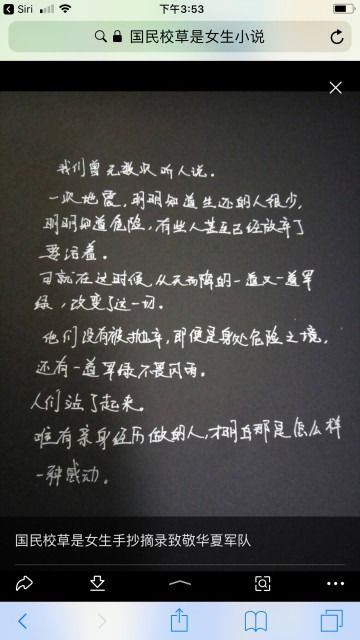 Siri
下午3:53
国民校草是女生小说
我们曾无数次听人说。
一次地震,明明知道生还的人很少,
明明知道危险,有些人甚至已经放弃了
要活着。
可就在这时候,从天而降的一道又一道军
绿,改变了这一切。
他们没有被抛弃,即便是身处危险之境,
还有一道军绿不畏风雨。
人们站了起来。
唯有亲身经历做的人,才明白那是怎么样
一种感动。
国民校草是女生手抄摘录致敬华夏军队